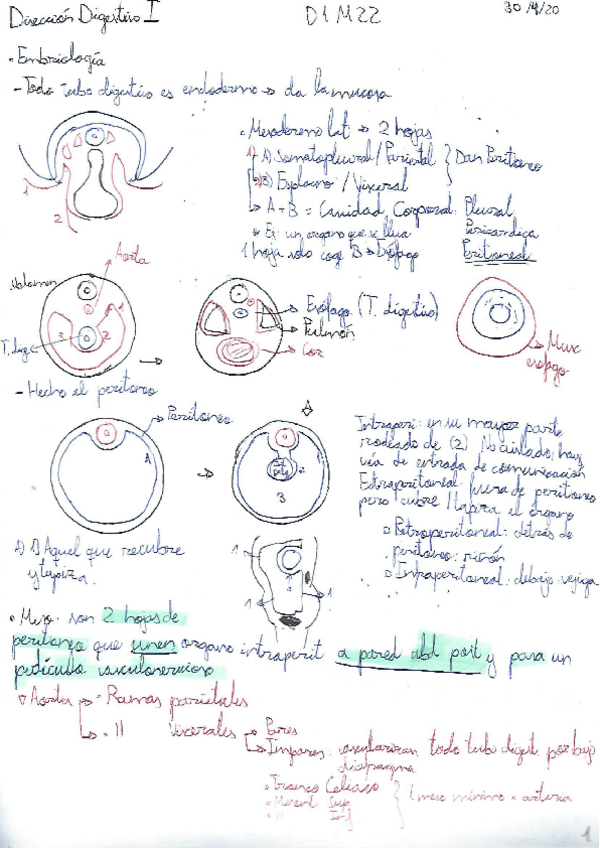 Disección Digestivo I
D1M22
30/4/20
• Embriología
- Todo tubo digestivo es endodermo → da la mucosa
1
2
• Mesodermo lat → 2 hojas
A) Somatopleural / Parietal
B) Esplacno / Visceral
Dan Peritoneo
→ A + B = Cavidad Corporal: Pleural
Pericardica
Peritoneal
* Ej: un organo que se lleva
1 hoja solo coge B → Esófago
Aorta
T. dig
1
2
2
Esófago (T. digestivo)
Pulmón
Cor
Musc
esofago
- Hecho el peritoneo
Peritoneo
1
2
3
Intraperi: en su mayor parte
rodeado de (2) No aislado, hay
vía de entrada de comunicación
Extraperitoneal: fuera de peritoneo
pero cubre / tapiza el órgano
Retroperitoneal: detrás de
peritoneo: riñón
Infraperitoneal: debajo: vejiga
1) Aquel que recubre
y tapiza.
1
1
• Meso: son 2 hojas de
peritoneo que unen organo intraperit a pared abd post y para un
pedículo vasculonervioso
Aorta → Ramas parietales
→ " Viscerales → Pares
→ Impares: vascularizan todo tubo digest. por bajo
diafragma
• Tronco Celiaco
• Mesent Sup
• " Inf
1 meso mínimo x arteria
1